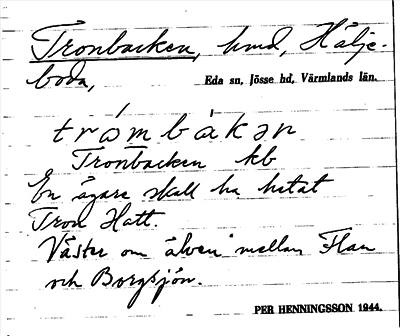 Tronbacken, hmd, Hälje-
boda,
Eda sn, Jösse hd, Värmlands län.
trómbàkən
Tronbacken kb
En ägare skall ha hetat
Tron Hatt.
Väster om älven mellan Flan
och Borgsjön.
PER HENNINGSSON 1944.